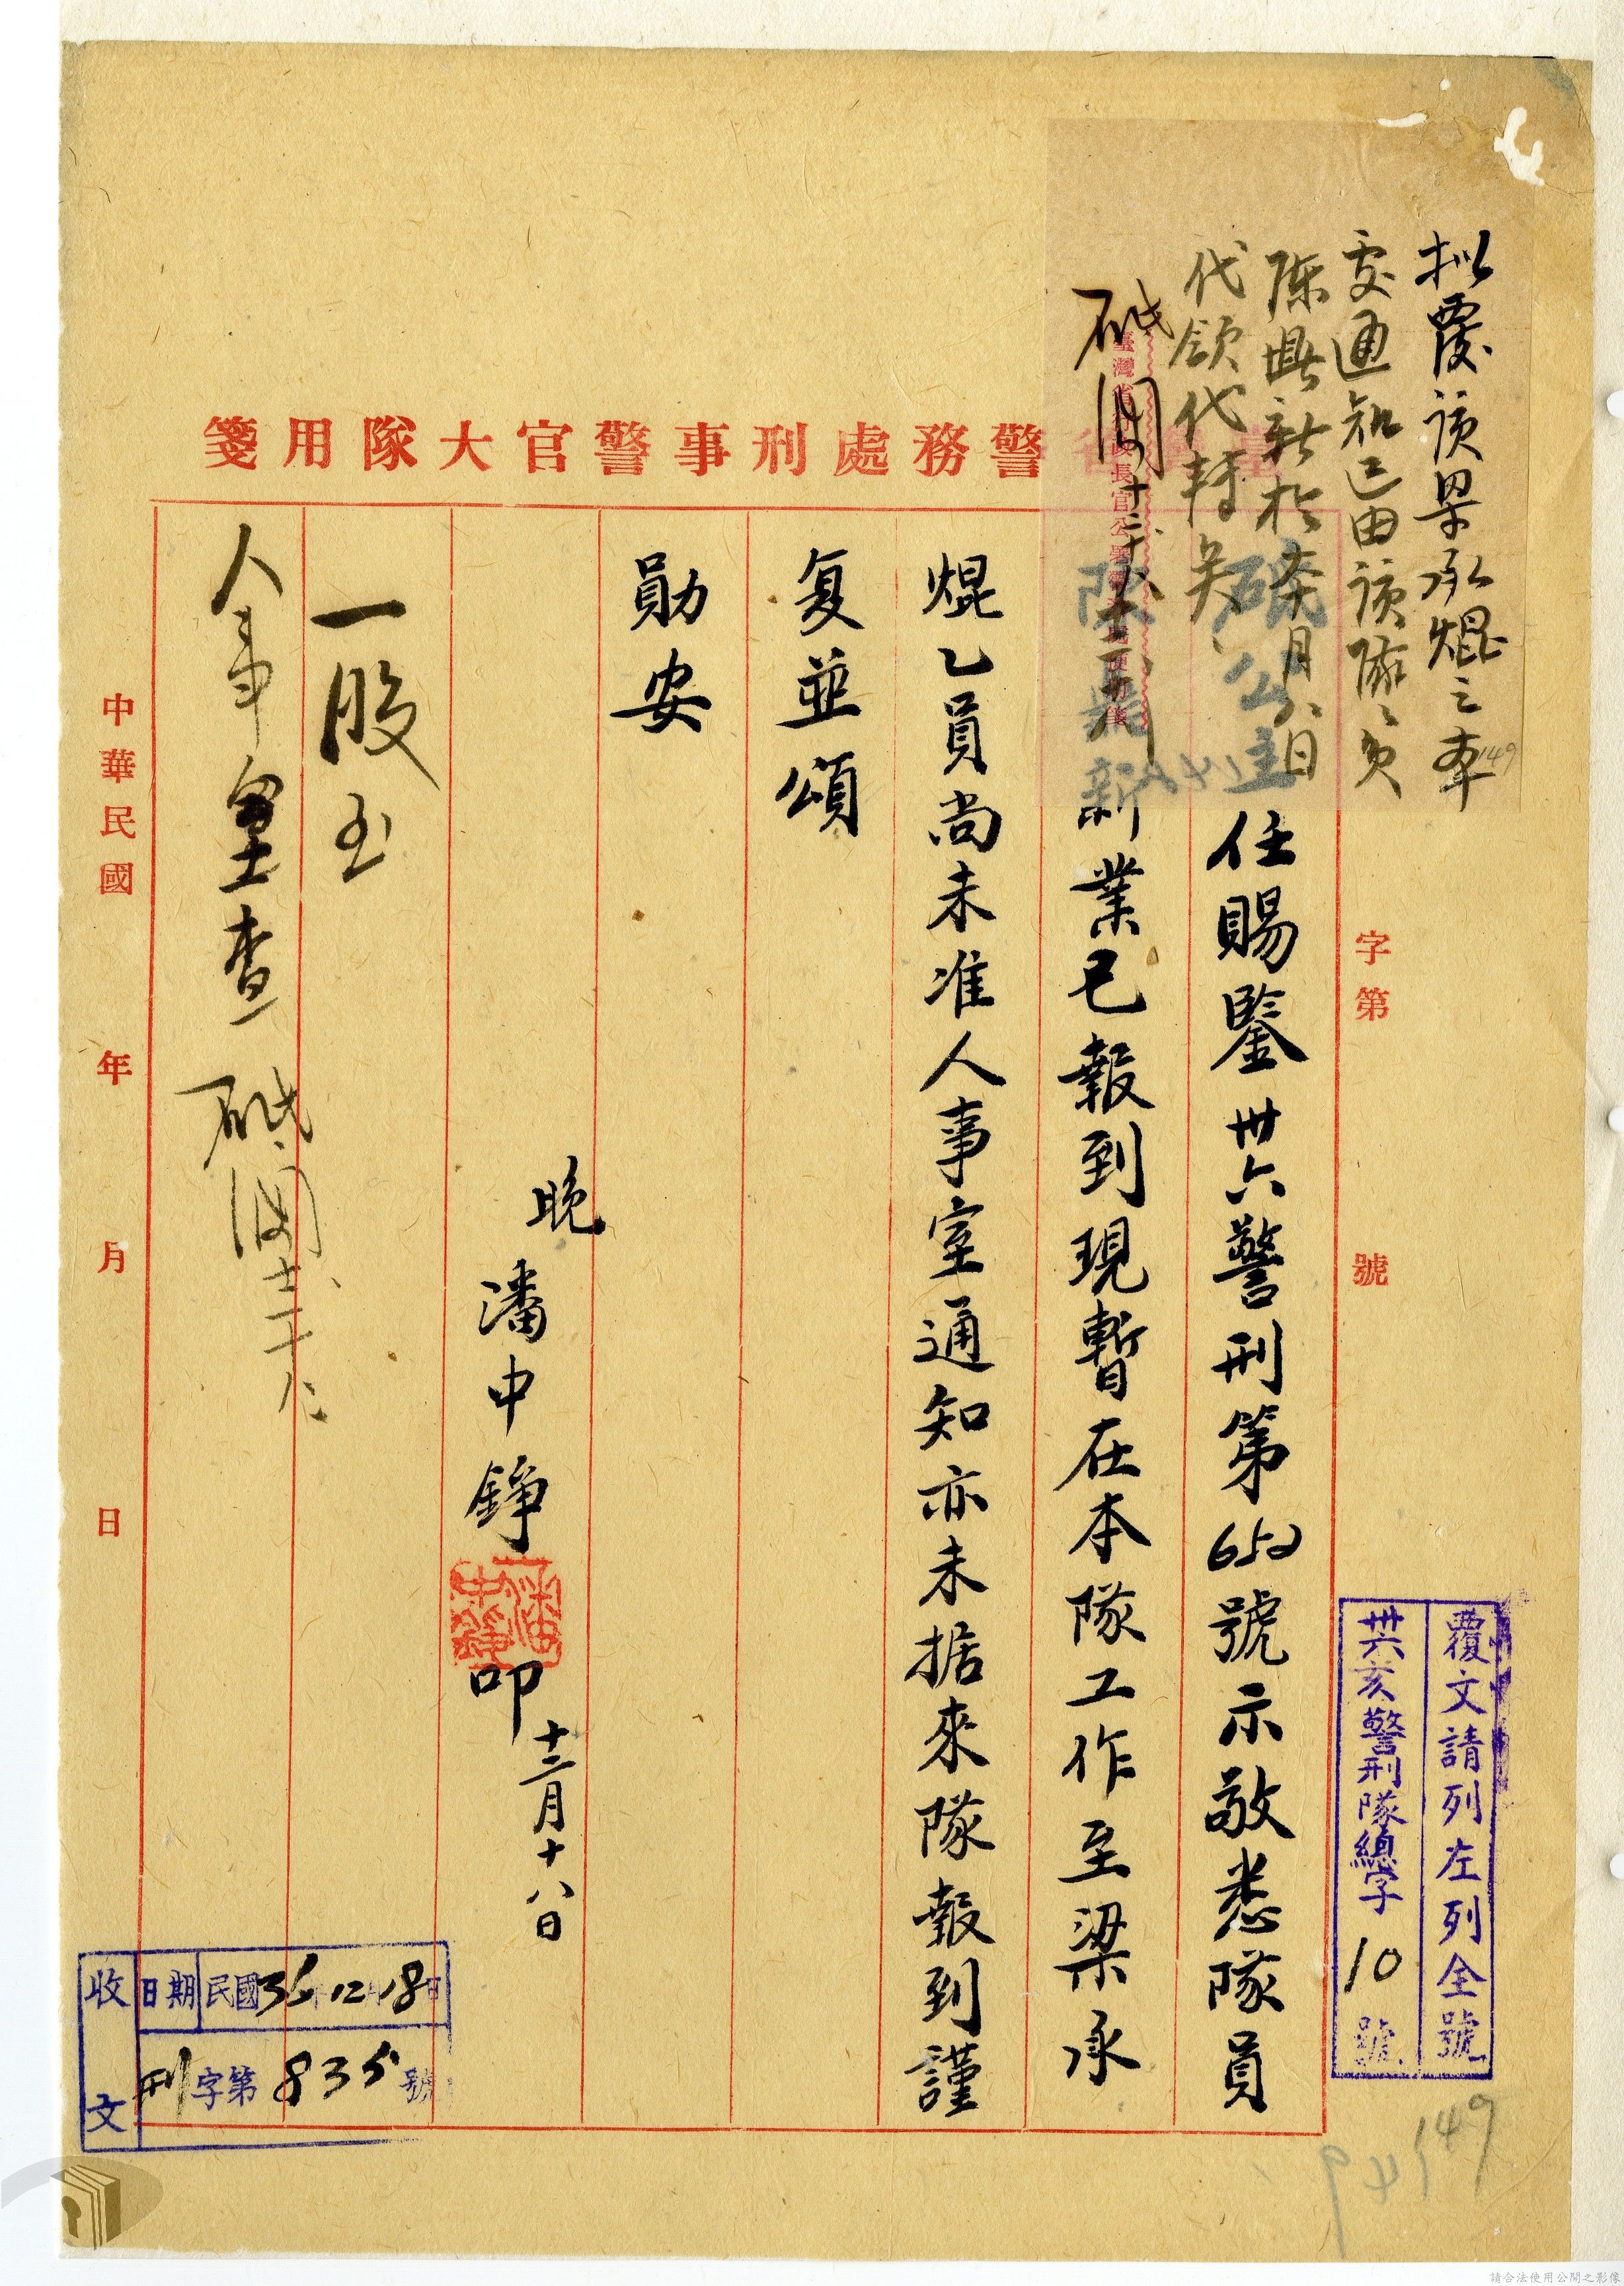 擬覆該梁承焜之本
處通知已由該隊隊員
陳鼎新於本月八日
代領代轉矣
警務處刑事警官大隊用箋
字第 號
覆文請列左列全號
卅六亥警刑隊總字10號
砥公主任賜鑒卅六警刑第652號示敬悉隊員
陳鼎新業已報到現暫在本隊工作至梁承
焜乙員尚未准人事室通知亦未据來隊報到謹
复並頌
勛安
晚潘中錚叩十二月十八日
潘中錚
一股
人事室查
中華民國 年 月 日
收文
日期 民國36 12 18
刑字第835號
149
149
請合法使用公開之影像